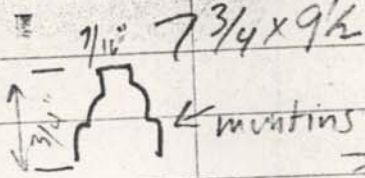 7/16" 7 3/4 x 9 1/2
3/4"
muntins